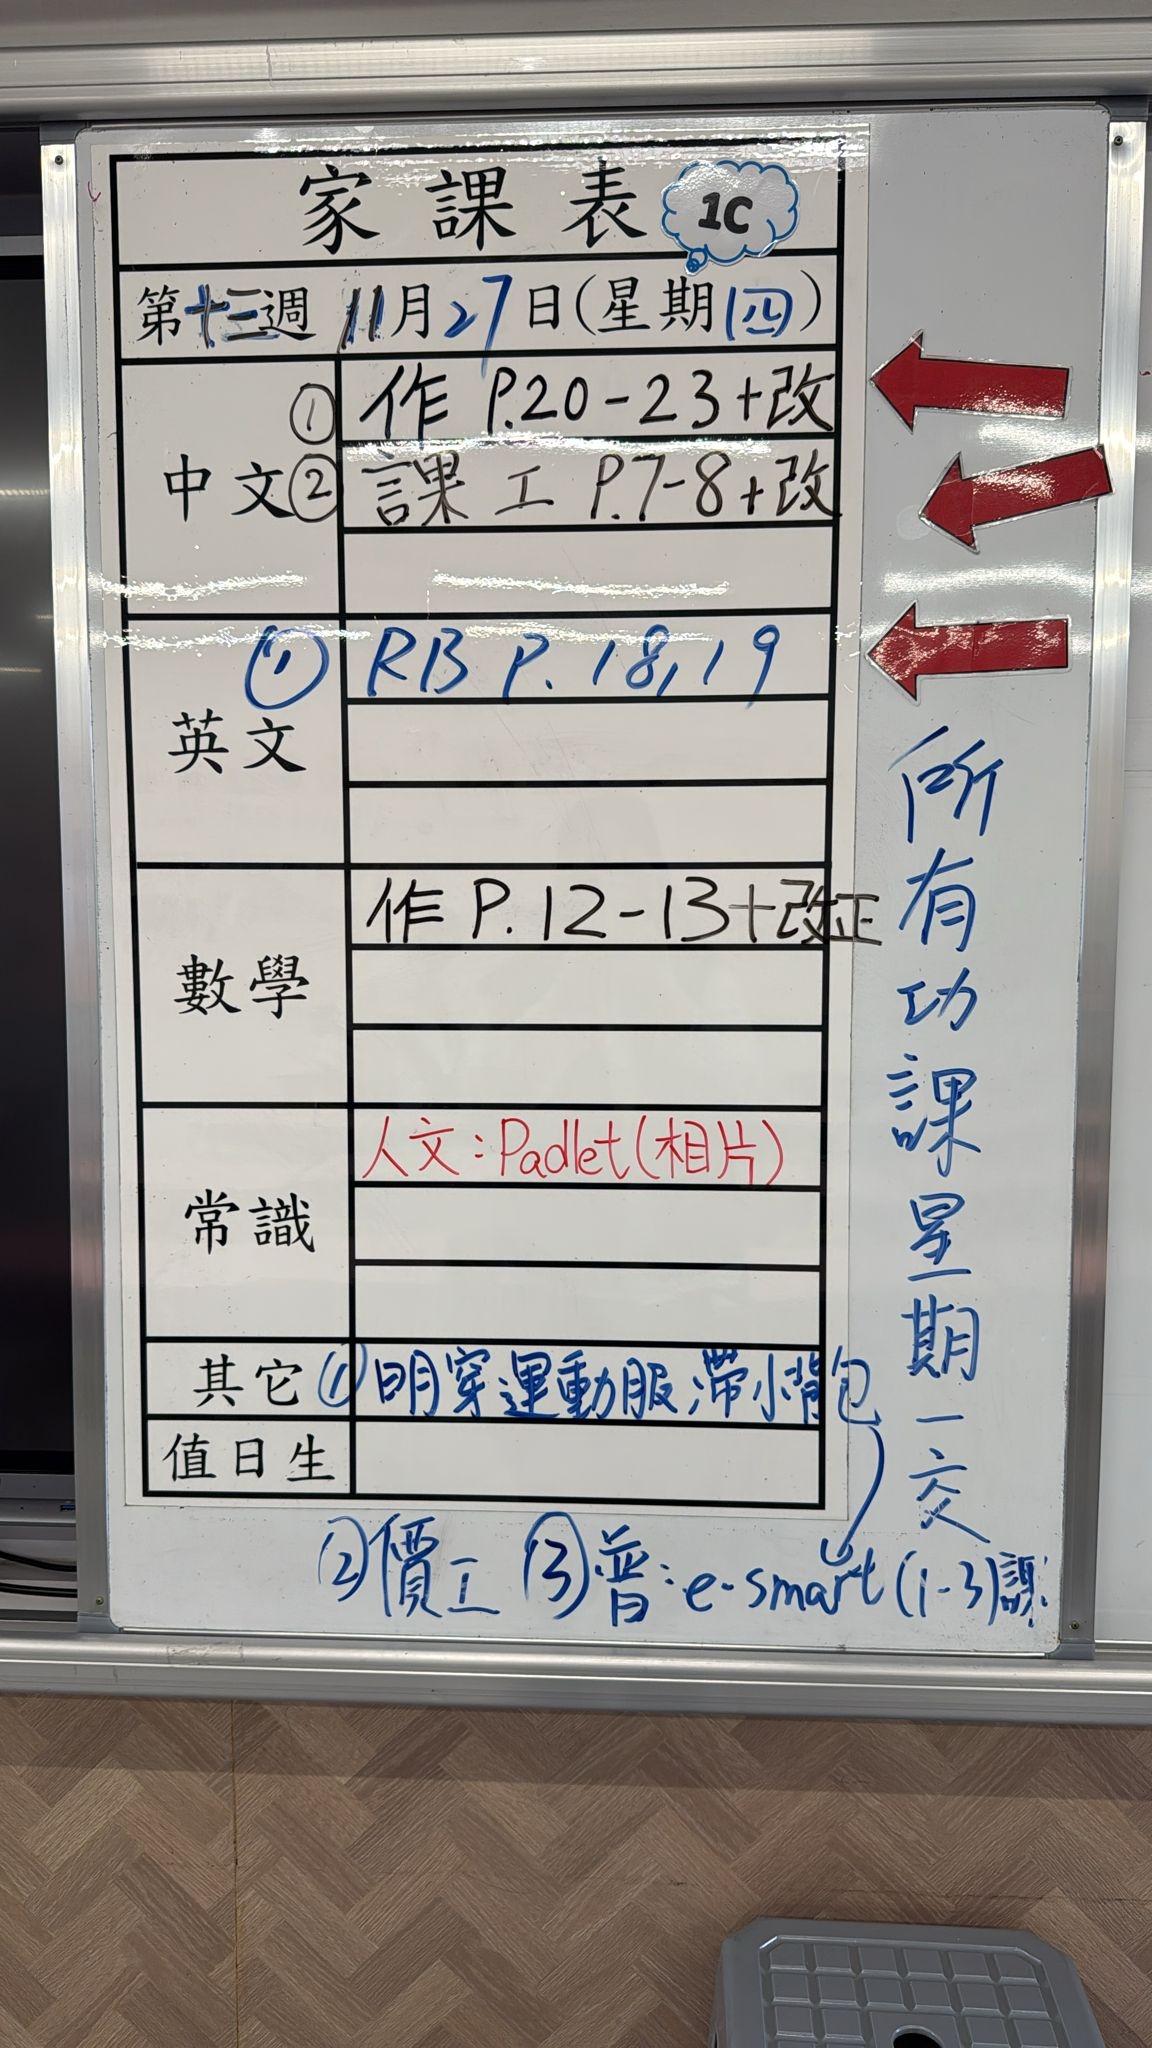 家課表 1C
第十三週 11月27日(星期四)
中文
① 作 P.20-23+改
② 課工 P.7-8+改
英文
① RB P.18,19
數學
作 P.12-13+改正
常識
人文:Padlet(相片)
其它 ① 明穿運動服,帶小背包
值日生
② 價工 ③ 普:e-smart(1-3)課
所有功課星期一交